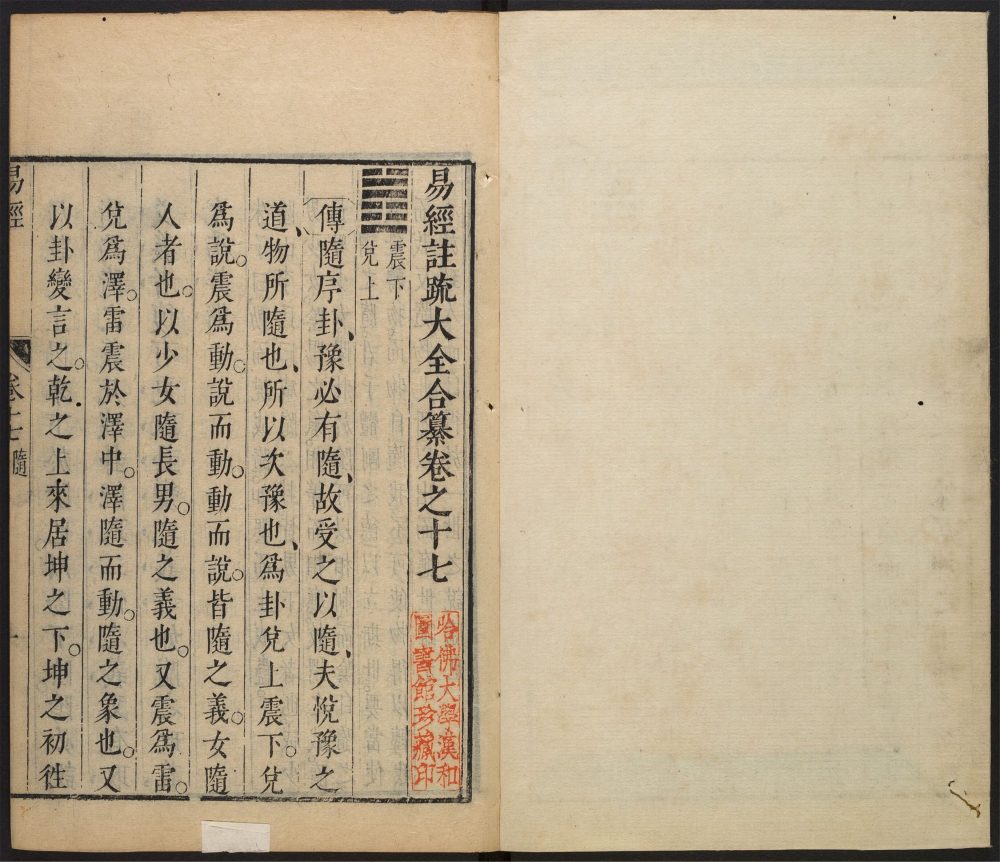 易經註疏大全合纂卷之十七
哈佛大學漢和
圖書館珍藏印
震下
兌上
傳隨序卦、豫必有隨、故受之以隨、夫悅豫之
道、物所隨也、所以次豫也、爲卦兌上震下。兌
爲說。震爲動。說而動。動而說。皆隨之義。女隨
人者也。以少女隨長男。隨之義也。又震爲雷。
兌爲澤。雷震於澤中。澤隨而動。隨之象也。又
以卦變言之。乾之上來居坤之下。坤之初徃
易經
卷十七 隨
一